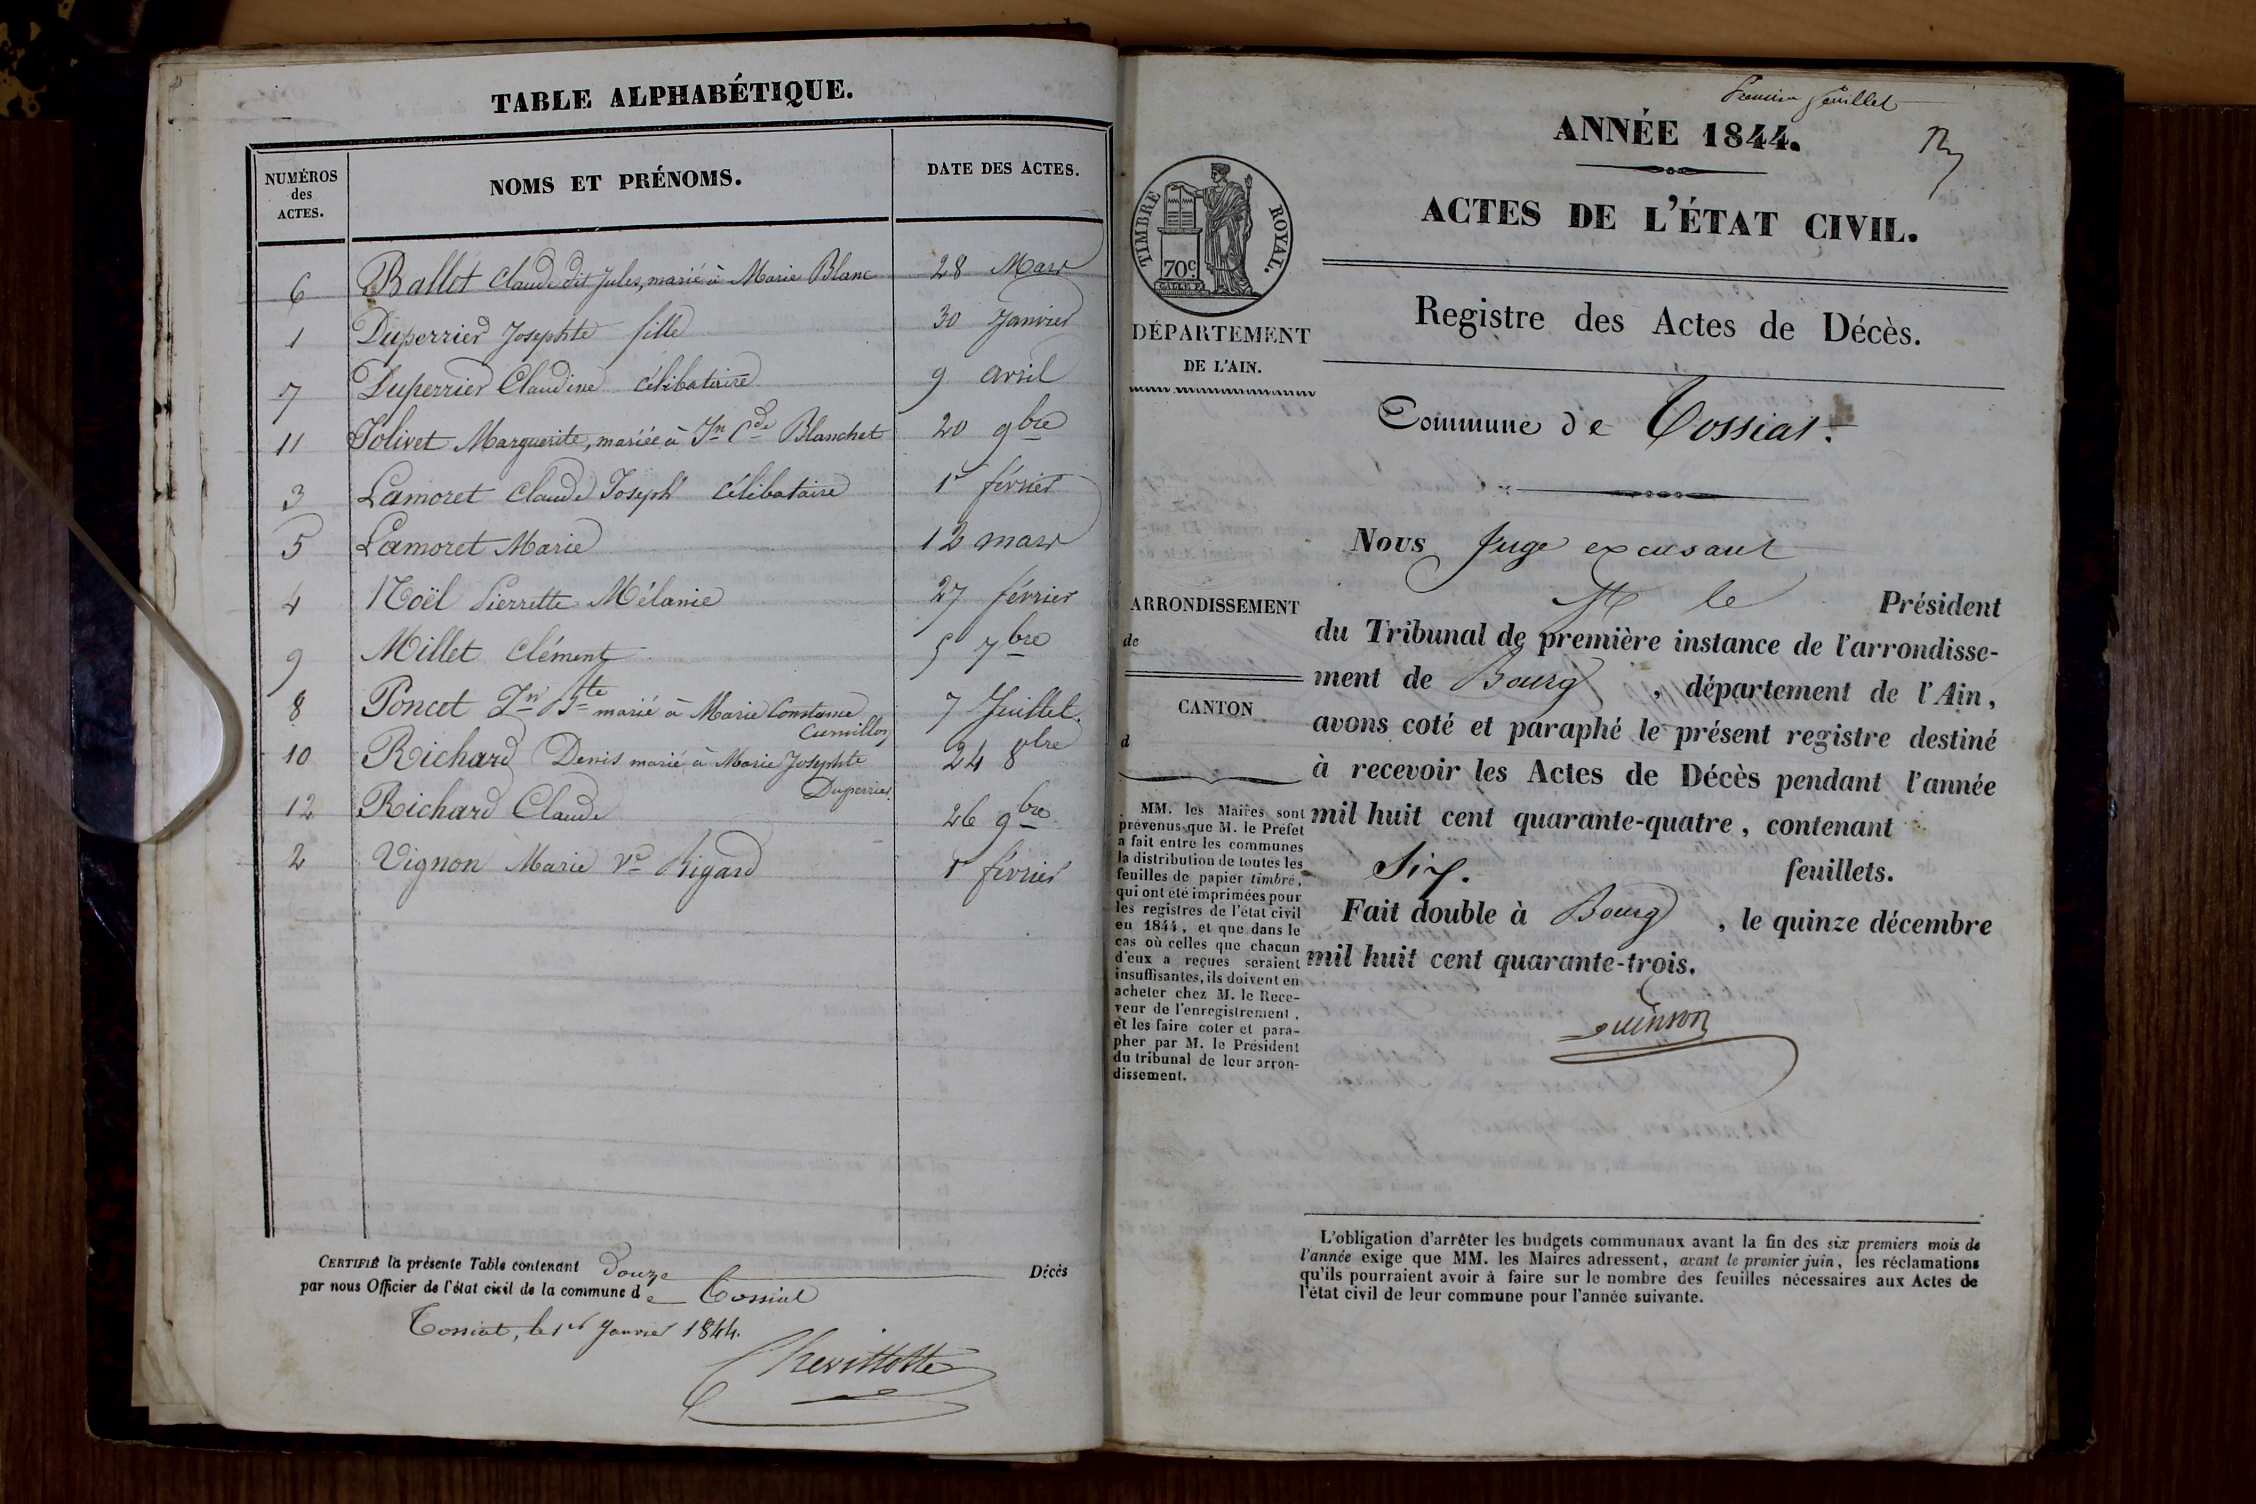 TABLE ALPHABÉTIQUE.
NUMÉROS
des
ACTES.
NOMS ET PRÉNOMS.
DATE DES ACTES.
6 Ballet Claude dit Jules, marié à Marie Blanc 28 Mars
1 Duperrier Josephte fille 30 Janvier
7 Duperrier Claudine célibataire 9 avril
11 Jolivet Marguerite, mariée à Jn Cde Blanchet 20 9bre
3 Lamoret Claude Joseph célibataire 1r février
5 Lamoret Marie 12 mars
4 Noël Pierrette Mélanie 27 février
9 Millet Clément 5 7bre
8 Poncet Jn Bte marié à Marie Constance 7 Juillet.
Cumillon
10 Richard Denis marié à Marie Josephte 24 8bre
Duperrier.
12 Richard Claude 26 9bre
2 Vignon Marie Ve Rigard 1r février
CERTIFIÉ la présente Table contenant douze Décès
par nous Officier de l'état civil de la commune de Tossiat
Tossiat, le 1er Janvier 1844.
Chevillotte
Premier feuillet
ANNÉE 1844.
ACTES DE L'ÉTAT CIVIL.
TIMBRE ROYAL.
70c
DÉPARTEMENT
DE L'AIN.
Registre des Actes de Décès.
Commune de Tossiat.
Nous Juge excusant
M le Président
du Tribunal de première instance de l'arrondisse-
ment de Bourg , département de l'Ain,
avons coté et paraphé le présent registre destiné
à recevoir les Actes de Décès pendant l'année
mil huit cent quarante-quatre, contenant
Six. feuillets.
Fait double à Bourg , le quinze décembre
mil huit cent quarante-trois.
Guinson
ARRONDISSEMENT
de
CANTON
d
MM. les Maires sont
prévenus que M. le Préfet
a fait entre les communes
la distribution de toutes les
feuilles de papier timbré,
qui ont été imprimées pour
les registres de l'état civil
en 1844, et que dans le
cas où celles que chacun
d'eux a reçues seraient
insuffisantes, ils doivent en
acheter chez M. le Rece-
veur de l'enregistrement,
et les faire coter et para-
pher par M. le Président
du tribunal de leur arron-
dissement.
L'obligation d'arrêter les budgets communaux avant la fin des six premiers mois de
l'année exige que MM. les Maires adressent, avant le premier juin, les réclamations
qu'ils pourraient avoir à faire sur le nombre des feuilles nécessaires aux Actes de
l'état civil de leur commune pour l'année suivante.